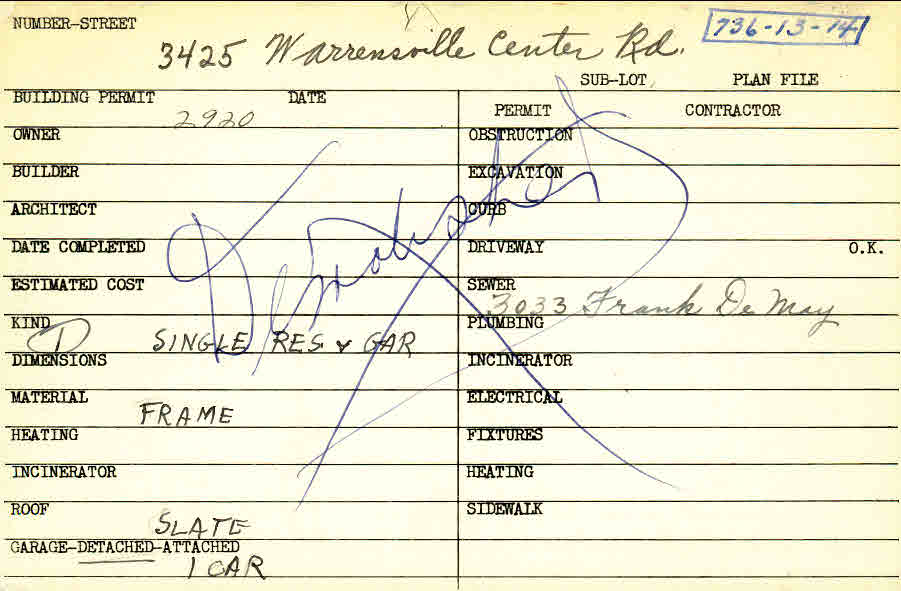 NUMBER-STREET
3425 Warrensville Center Rd.
736-13-14
SUB-LOT, PLAN FILE
BUILDING PERMIT DATE
2920
PERMIT CONTRACTOR
OWNER
OBSTRUCTION
BUILDER
EXCAVATION
ARCHITECT
CURB
DATE COMPLETED
DRIVEWAY O.K.
ESTIMATED COST
SEWER
3033 Frank De May
KIND
1 SINGLE RES & GAR
PLUMBING
DIMENSIONS
INCINERATOR
MATERIAL
FRAME
ELECTRICAL
HEATING
FIXTURES
INCINERATOR
HEATING
ROOF
SLATE
SIDEWALK
GARAGE-DETACHED-ATTACHED
1 CAR